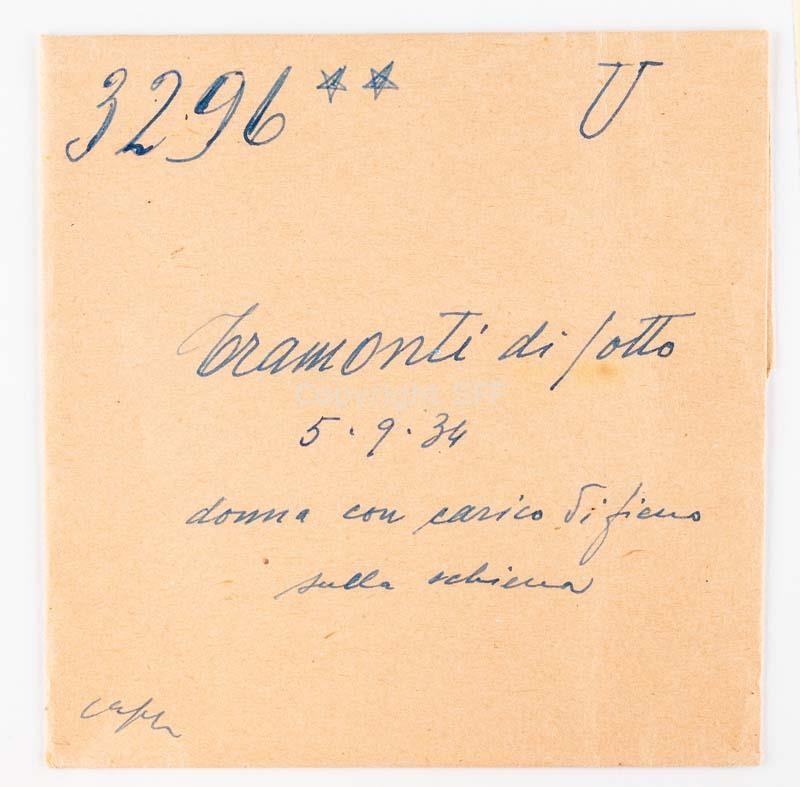 3296 ** U
Tramonti di sotto
Copyright SFF
5 · 9 · 34
donna con carico di fieno
sulla schiena